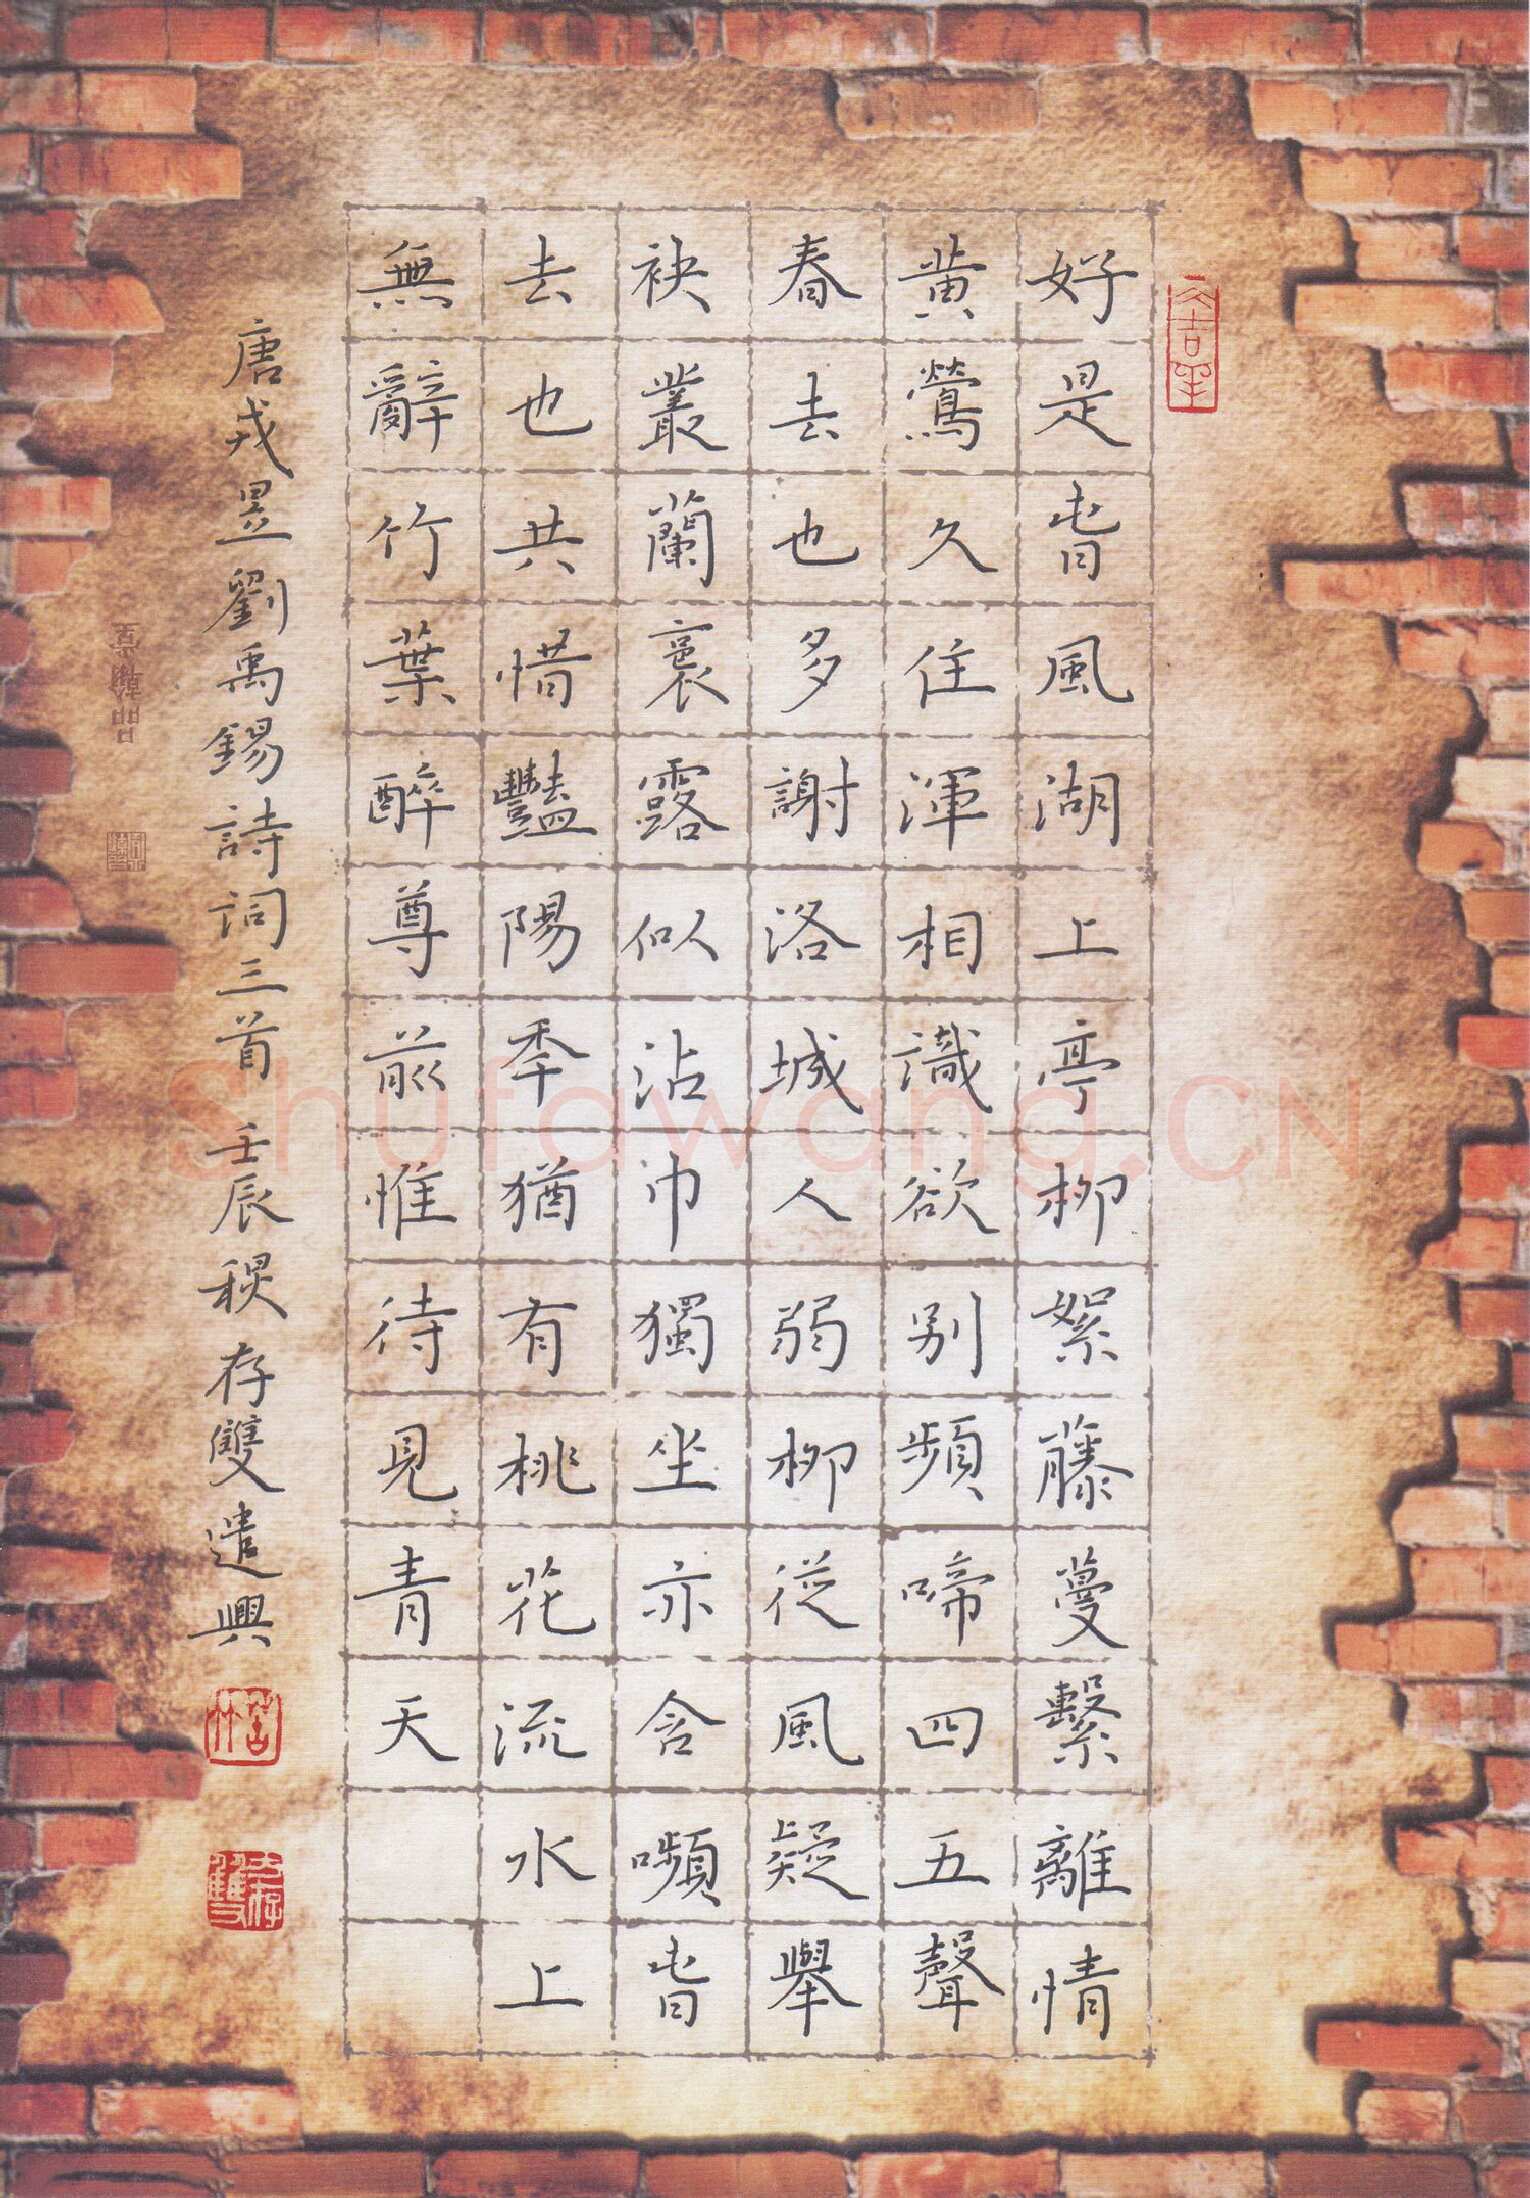 好是旾風湖上亭柳絮藤蔓繫離情
黃鶯久住渾相識欲别頻啼四五聲
春去也多謝洛城人弱柳從風疑舉
袂叢蘭裛露似沾巾獨坐亦含嚬旾
去也共惜豔陽秊猶有桃花流水上
無辭竹葉醉尊前惟待見青天
唐戎昱劉禹錫詩詞三首 壬辰秋 存雙遣興
Shufawang.CN